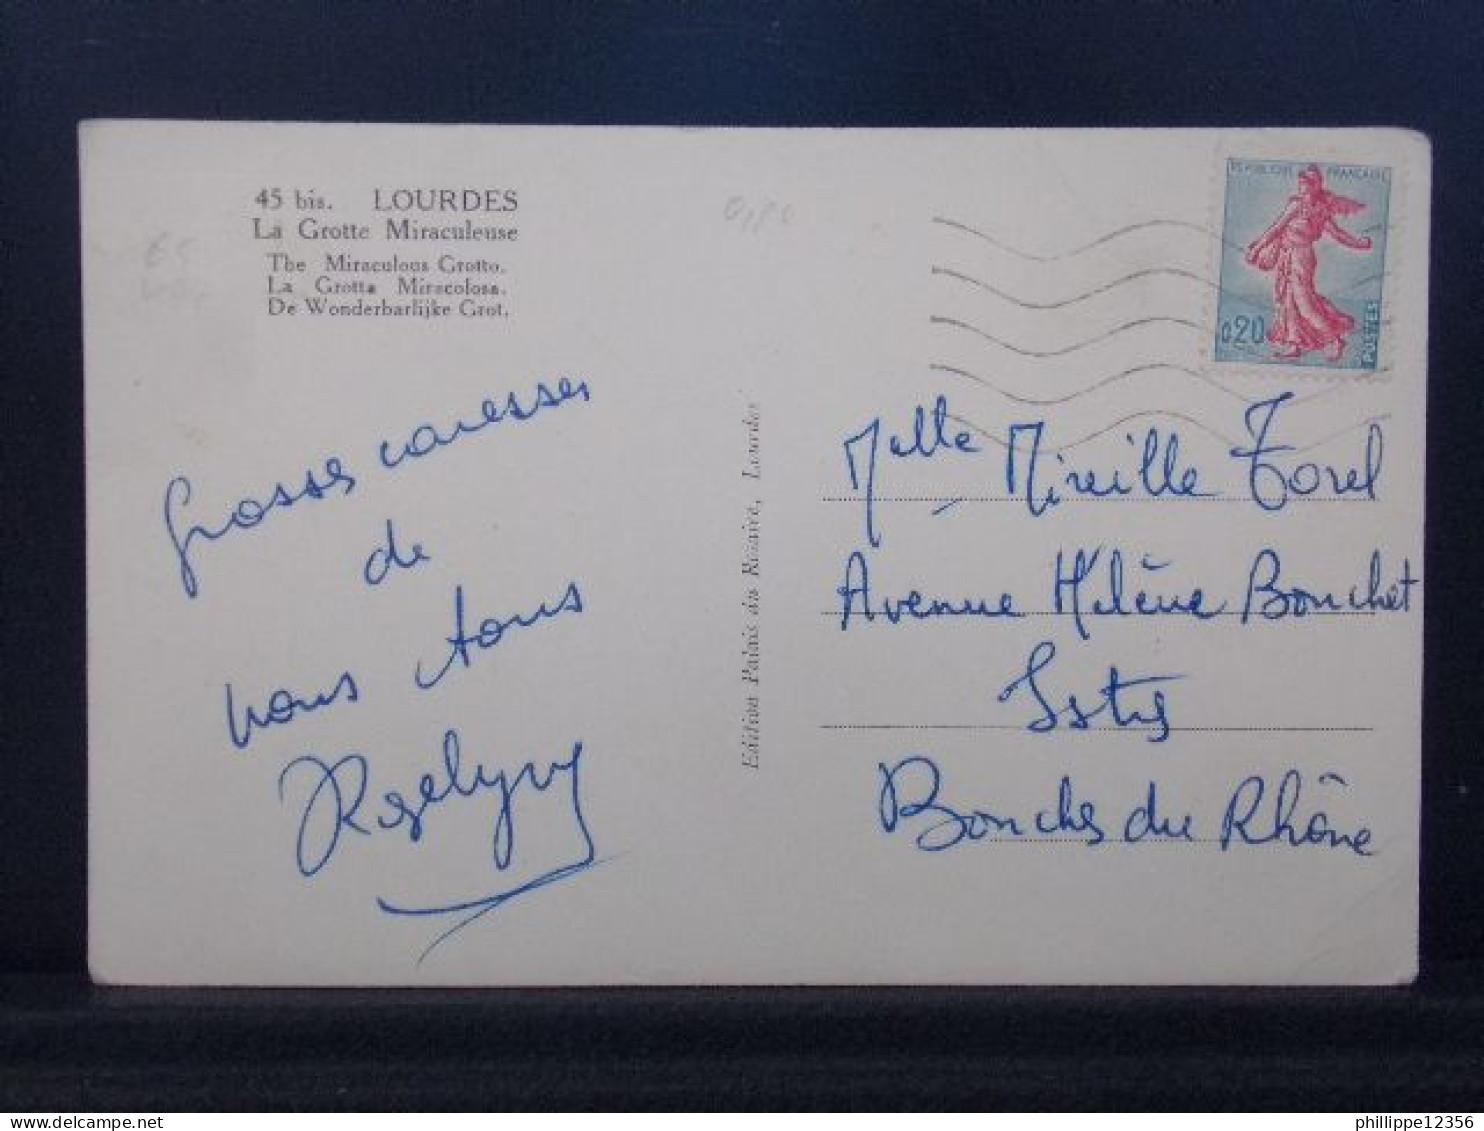 45 bis. LOURDES
La Grotte Miraculeuse
The Miraculous Grotto.
La Grotta Miracolosa.
De Wonderbarlijke Grot.
Grosses caresses
de
nous tous
Edition Palais du Rosaire, Lourdes
REPUBLIQUE FRANÇAISE
0,20
POSTES
Melle Mireille Torel
Avenue Hélène Bouchet
Istres
Bouches du Rhône
phillippe12356